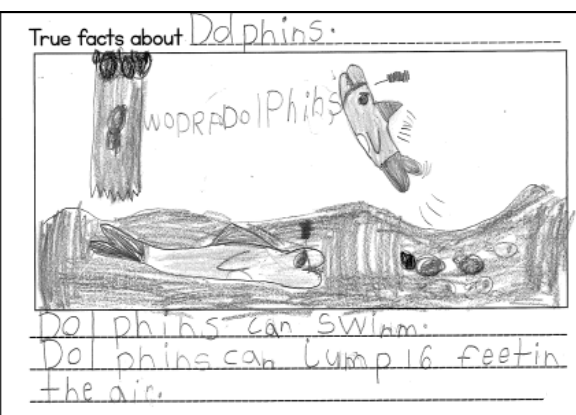 True facts about Dolphins.
WODRFDolPhins
Dolphins can swinm.
Dolphins can Lump 16 feetin
the air.